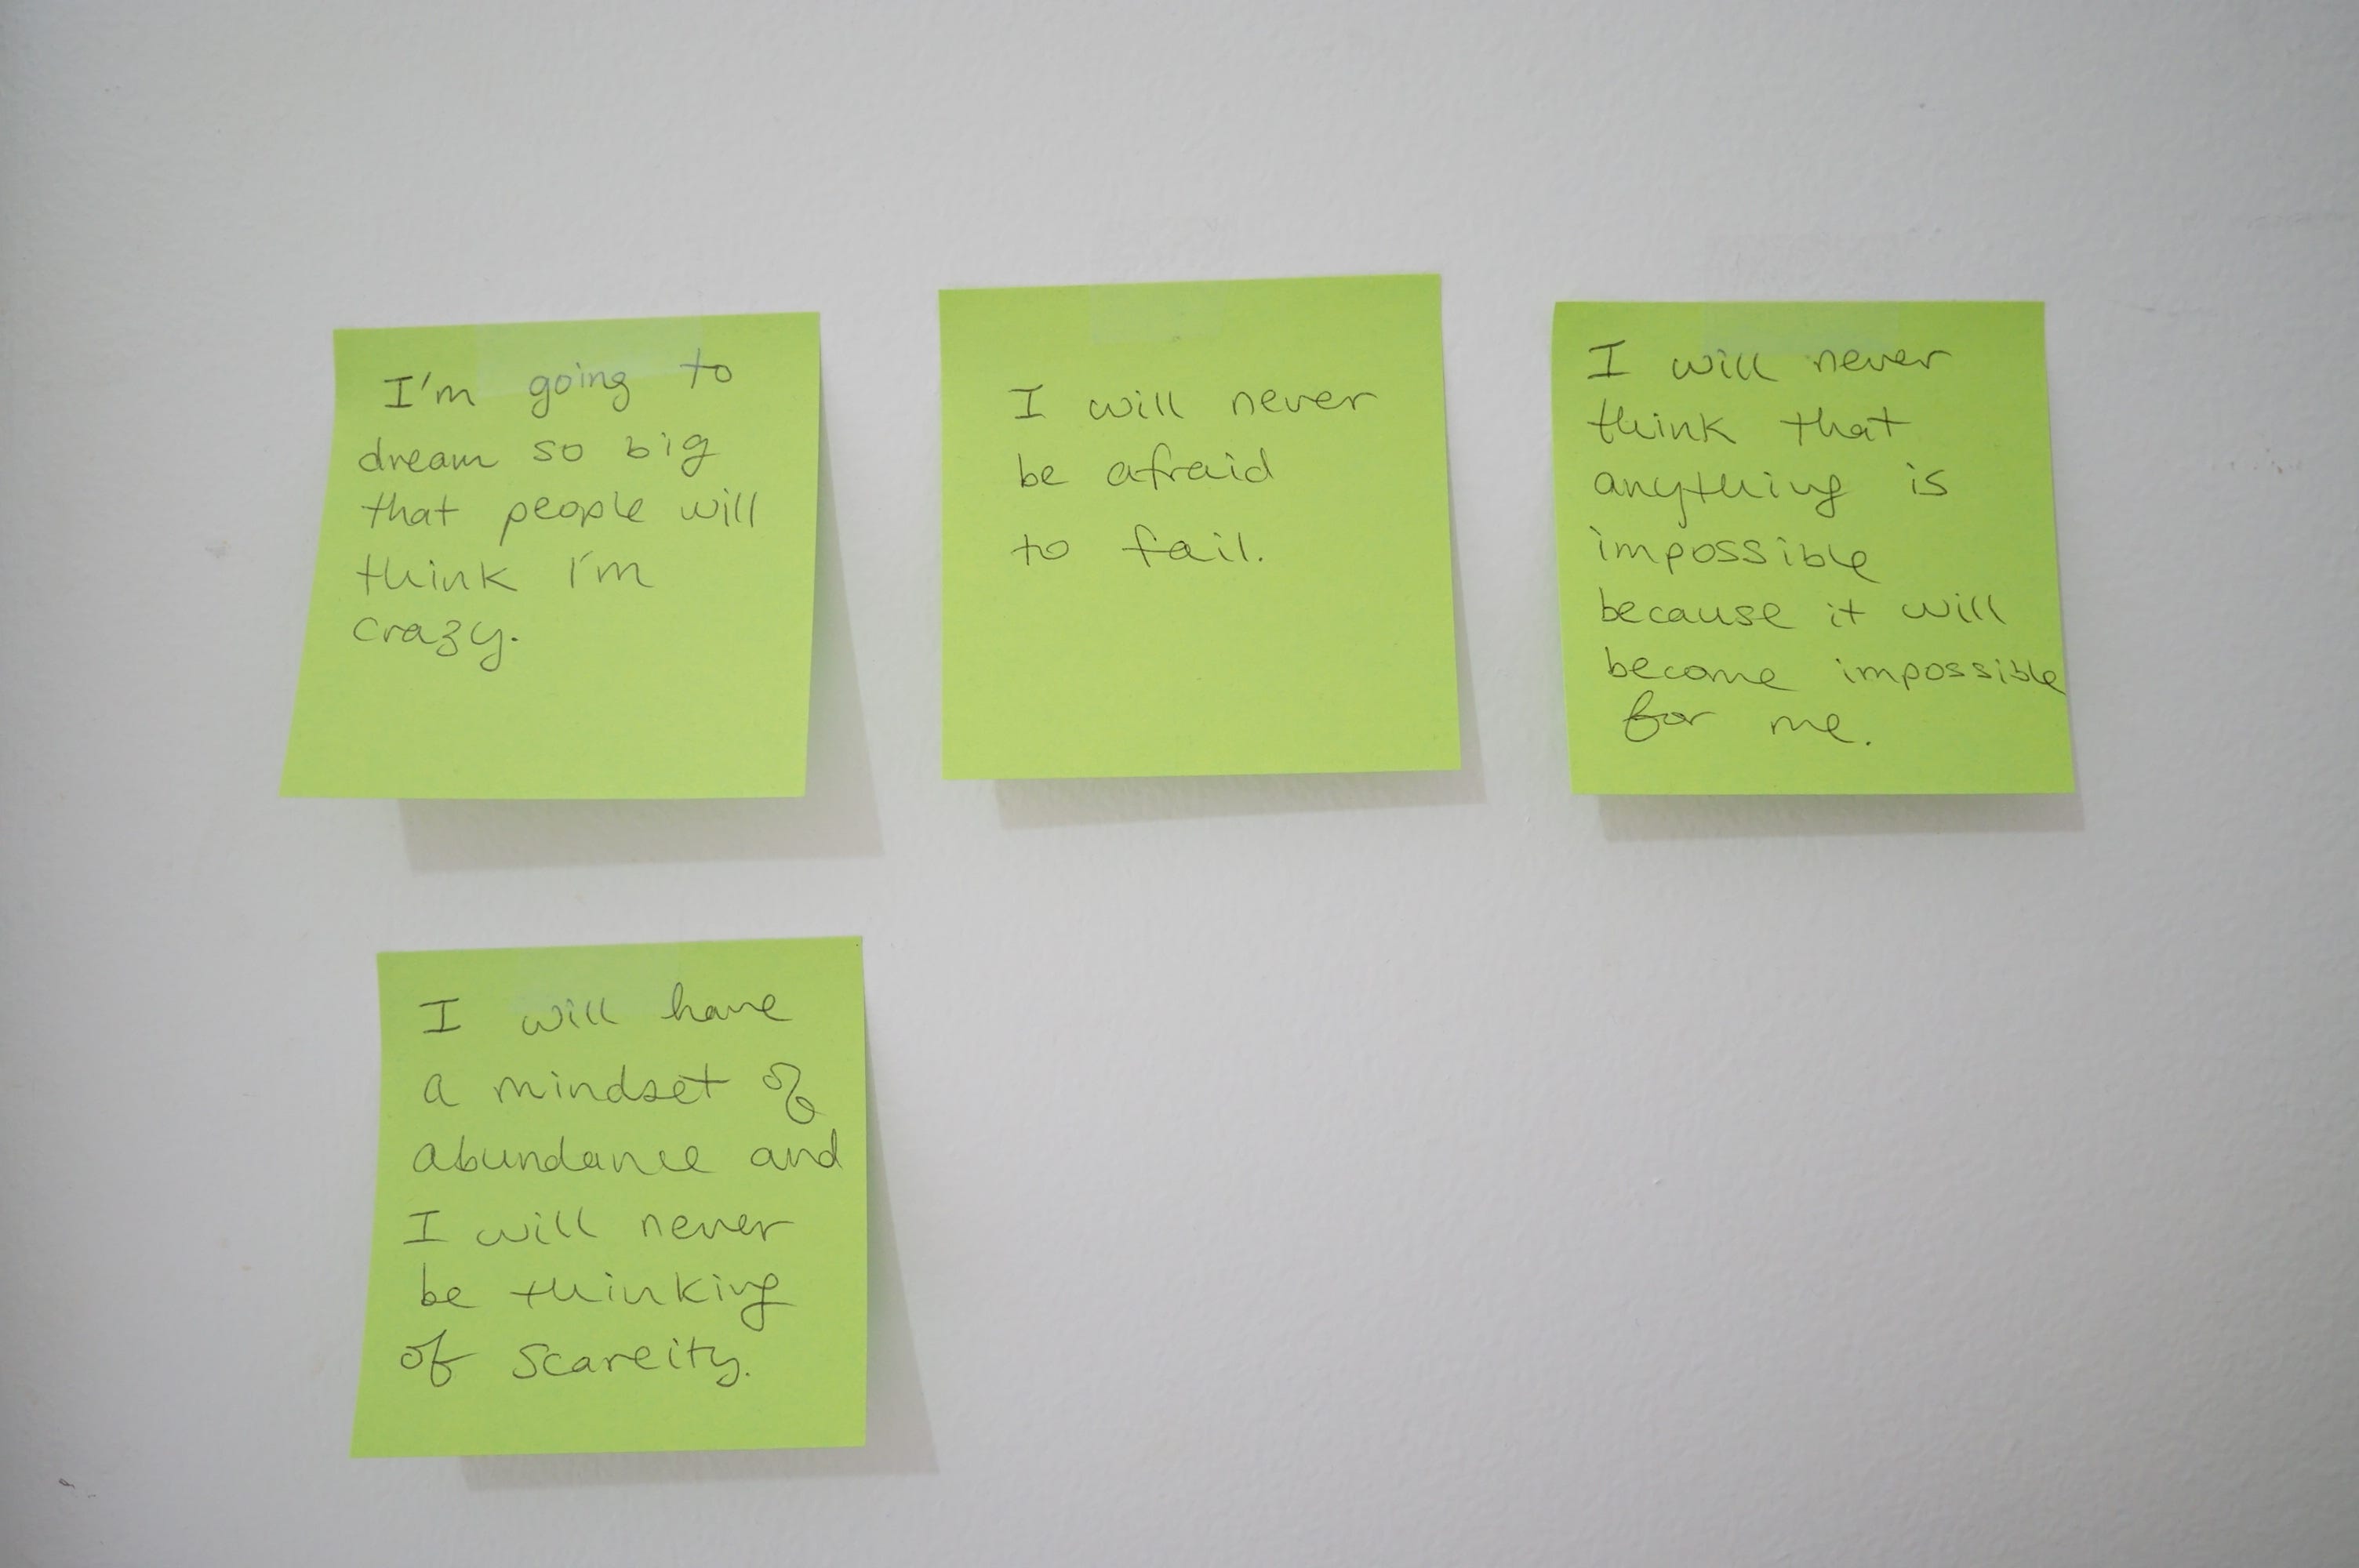 I'm going to
dream so big
that people will
think I'm
crazy.
I will never
be afraid
to fail.
I will never
think that
anything is
impossible
because it will
become impossible
for me.
I will have
a mindset of
abundance and
I will never
be thinking
of scarcity.